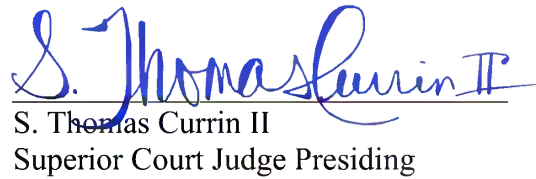 S. Thomas Currin II
S. Thomas Currin II
Superior Court Judge Presiding